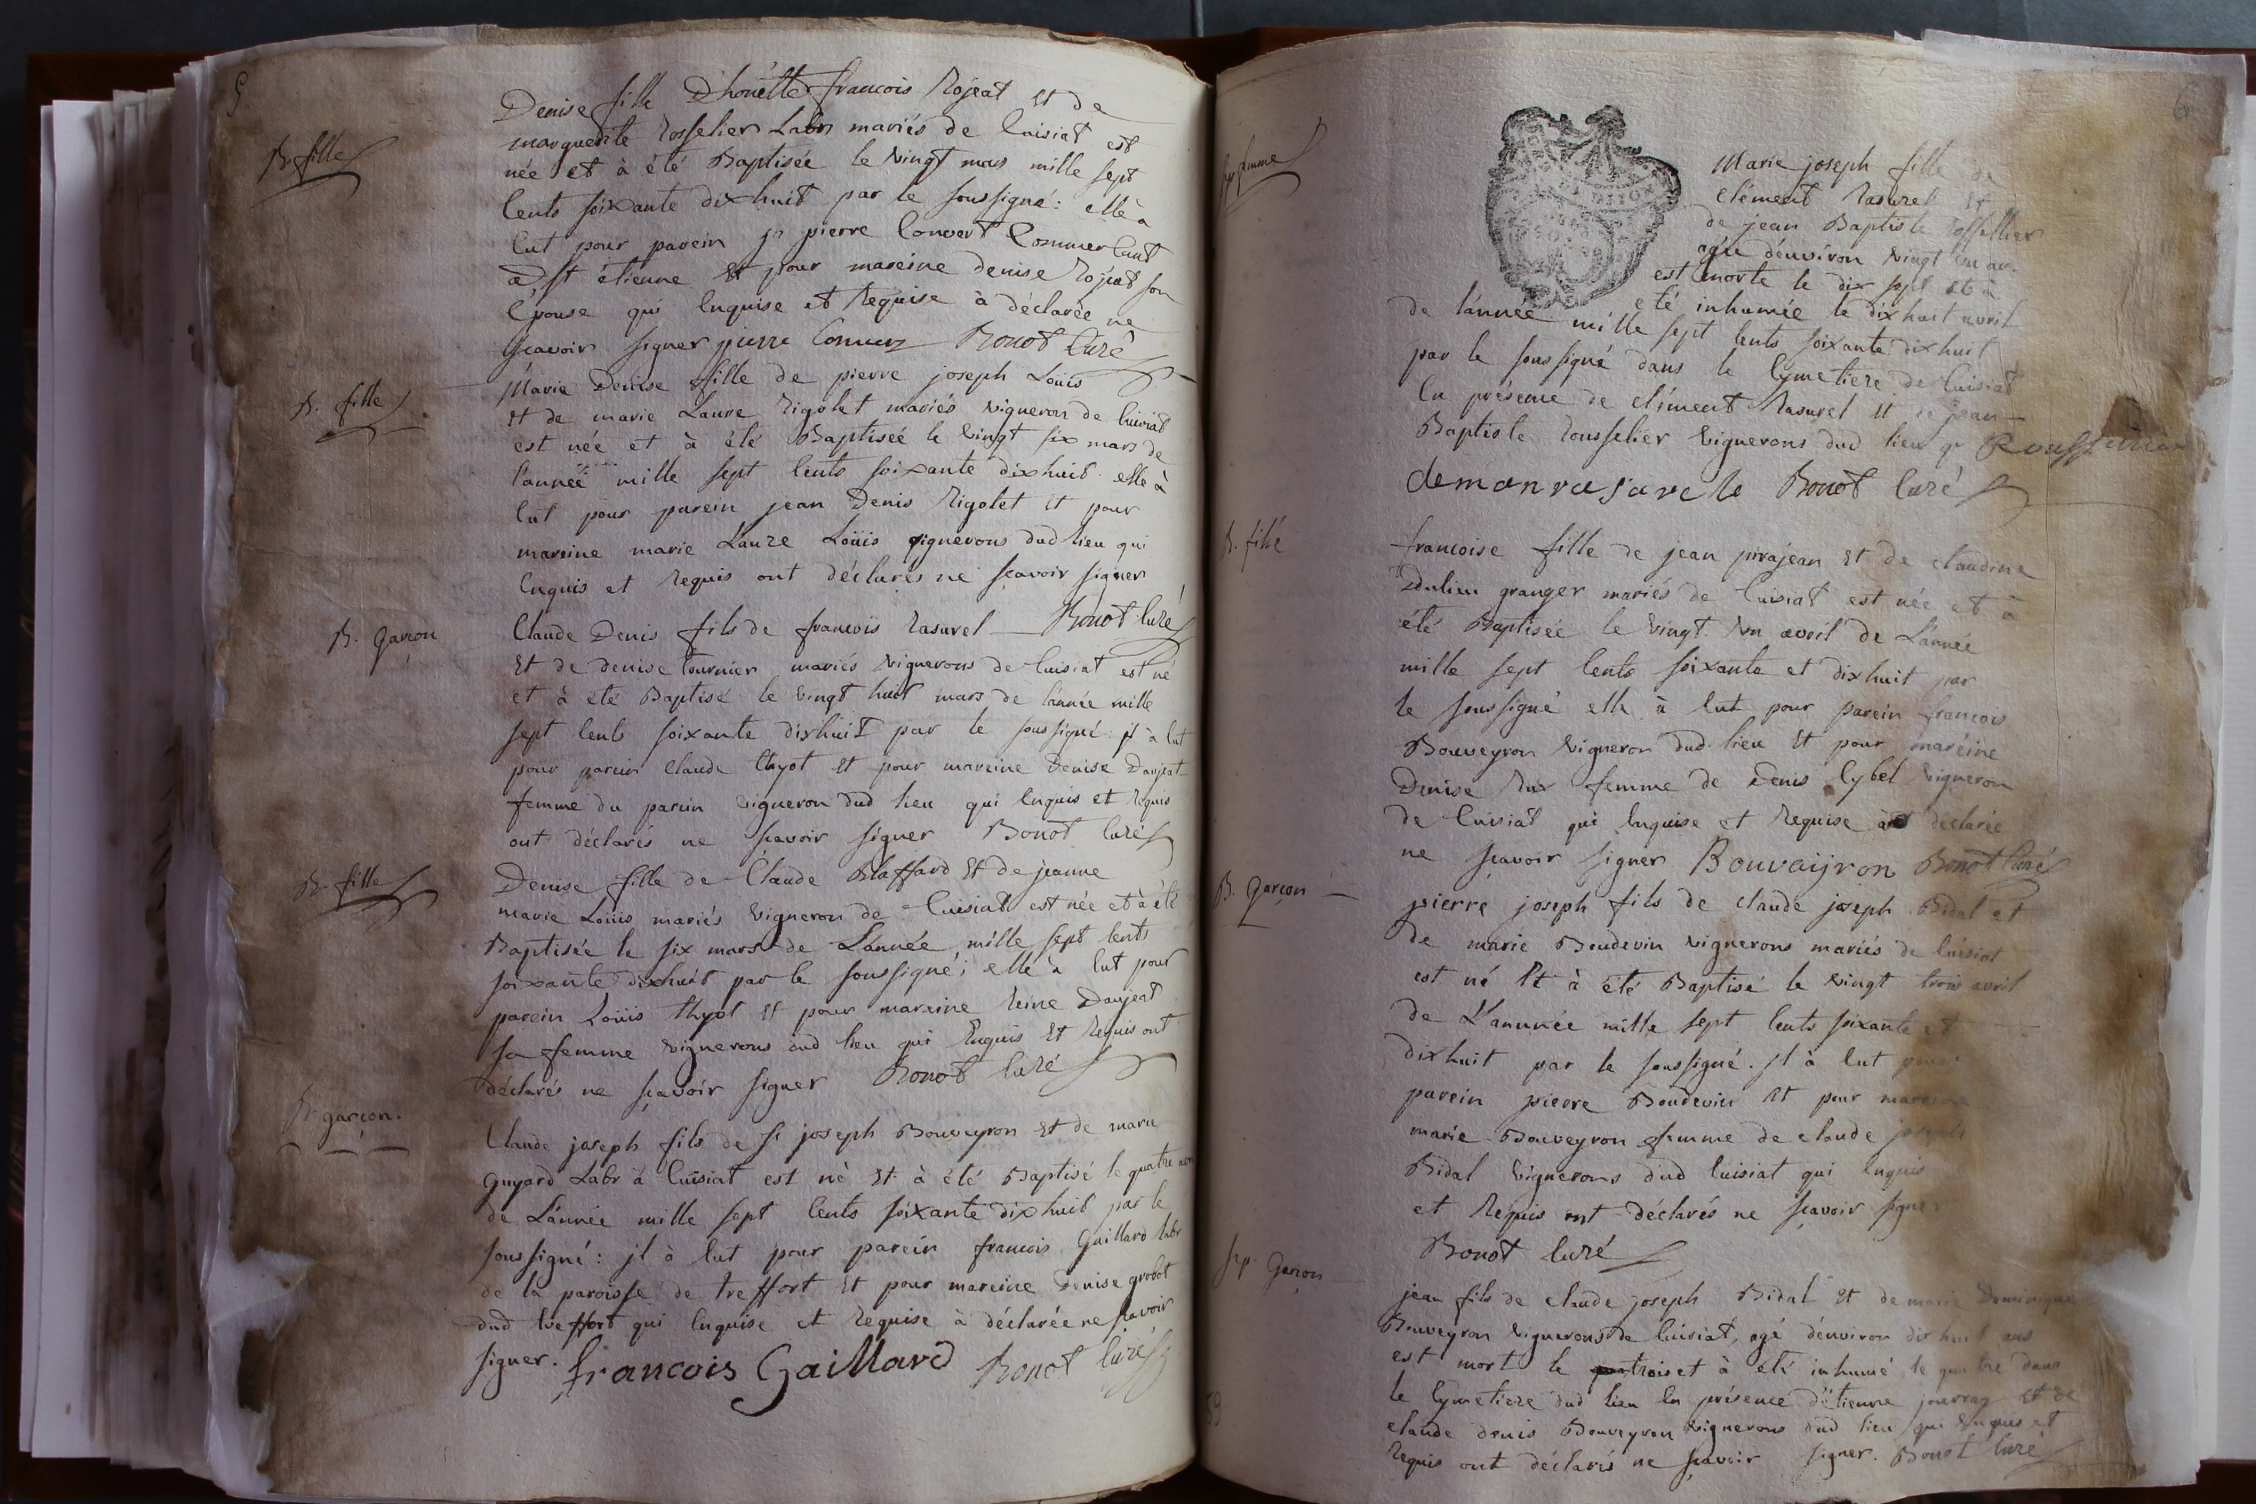 5
B. fille
Denise fille D'honètte francois Rojeat Et de
marguerite Rosselier Labrs mariés de Cuisiat est
née et à été Baptisée le vingt mars mille sept
Cents soixante dixhuit par le soussigné: elle à
Eut pour parein sr pierre Convert Commercant
à st étienne Et pour mareine denise Rojeat son
Epouse qui Enquise et Requise à déclarée ne
sçavoir signer pierre Conver Bonot Curé
B. fille
Marie Denise fille de pierre joseph Loüis
Et de marie Laure Rigolet mariés vigneron de Cuisiat
est née et à été Baptiseé le vingt six mars de
l'année mille sept Cents soixante dixhuit. elle à
Eut pour parein jean Denis Rigolet Et pour
mareine marie Laure Loüis vignerons dud lieu qui
Enquis et Requis ont déclarés ne sçavoir signer
Bonot Curé
B. Garçon
Claude Denis fils de francois Rasurel
Et de denise tournier mariés vignerons de Cuisiat est né
et à été Baptisé le vingt huit mars de l'année mille
sept Cents soixante dixhuit par le soussigné jl à Eut
pour parein Claude thyot Et pour mareine Denise Daujeat
femme du parein vigneron dud lieu qui Enquis et Requis
ont déclarés ne sçavoir signer Bonot Curé
B. fille
Denise fille de Claude Blaffard Et de jeanne
marie Loüis mariés vigneron de Cuisiat est née et à été
Baptisée le six mars de L'année mille sept Cents
soixante dixhuit par le soussigné; elle à Eut pour
parein Loüis thyot Et pour mareine Reine Daujeat
sa femme vignerons dud lieu qui Enquis Et Requis ont
déclarés ne sçavoir signer Bonot Curé
B. garçon.
Claude joseph fils de sr joseph Bouveyron Et de marie
Guyard Labr à Cuisiat est né Et à été Baptisé le quatre
de L'année mille sept Cents soixante dixhuit par le
soussigné: jl à Eut pour parein francois Gaillard labr
de la paroisse de treffort Et pour mareine Denise grobot
dud treffort qui Enquise et Requise à déclarée ne sçavoir
signer. francois Gaillard Bonot Curé
6
femme
Marie joseph fille de
Clément Rasurel Et
de jean Baptiste Rosselier
agée d'environ vingt un ans
est morte le dix sept Et à
été inhumée le dixhuit avril
de l'année mille sept Cents soixante dixhuit
par le soussigné dans le Cymetiere de Cuisiat
En présence de clément Rasurel Et de jean
Baptiste Rousselier vignerons dud lieu
clemanrasarele Bonot Curé
B. fille
francoise fille de jean perajean Et de claudine
Dulieu granger mariés de Cuisiat est née et à
été Baptisée le vingt Un avril de L'année
mille sept Cents soixante et dixhuit par
le soussigné elle à Eut pour parein francois
Bouveyron vigneron dud lieu Et pour maréine
Denise Dux femme de Denis Cybel vigneron
de Cuisiat qui Enquise et Requise à déclarée
ne sçavoir signer Bouvaijron Bonot Curé
B. Garçon
pierre joseph fils de claude joseph Bidal et
de marie Boudevin vignerons mariés de Cuisiat
est né Et à été Baptisé le vingt trois avril
de L'annunée mille sept Cents soixante et
dixhuit par le soussigné. jl à Eut pour
parein pierre Boudevin Et pour mareine
marie Bouveyron femme de claude joseph
Bidal vignerons dud Cuisiat qui Enquis
et Requis ont déclarés ne sçavoir signer
Bonot Curé
sep. Garçon
jean fils de claude joseph Bidal Et de marie Dominique
Bouveyron vignerons de Cuisiat, agé d'environ dixhuit ans
est mort le trois et à été inhumé le quatre dans
le Cymetiere dud lieu En présence d'étienne Et de
claude denis Bouveyron vignerons dud lieu qui Enquis et
Requis ont déclarés ne sçavoir signer. Bonot Curé